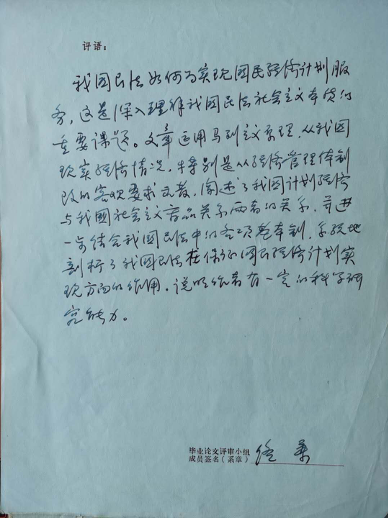 评语：
我国民法如何为实现国民经济计划服
务，这是深入理解我国民法社会主义本质的
重要课题。文章运用马列主义原理，从我国
现实经济情况，特别是从经济管理体制
改的客观要求出发，阐述了我国计划经济
与我国社会主义商品关系两者的关系，并进
一步结合我国民法中的各项基本制，系统地
剖析了我国民法在保证国民经济计划实
现方面的作用。说明作者有一定的科学研
究能力。
毕业论文评审小组
成员签名（盖章）